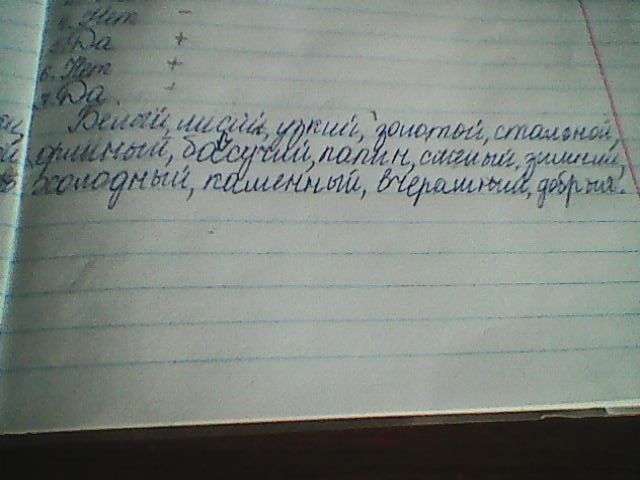 4. Нет -
5. Да +
6. Нет +
7. Да. +
Белый, лисий, узкий, золотой, стальной,
длинный, барсучий, папин, смелый, зимний,
холодный, каменный, вчерашний, добрый.